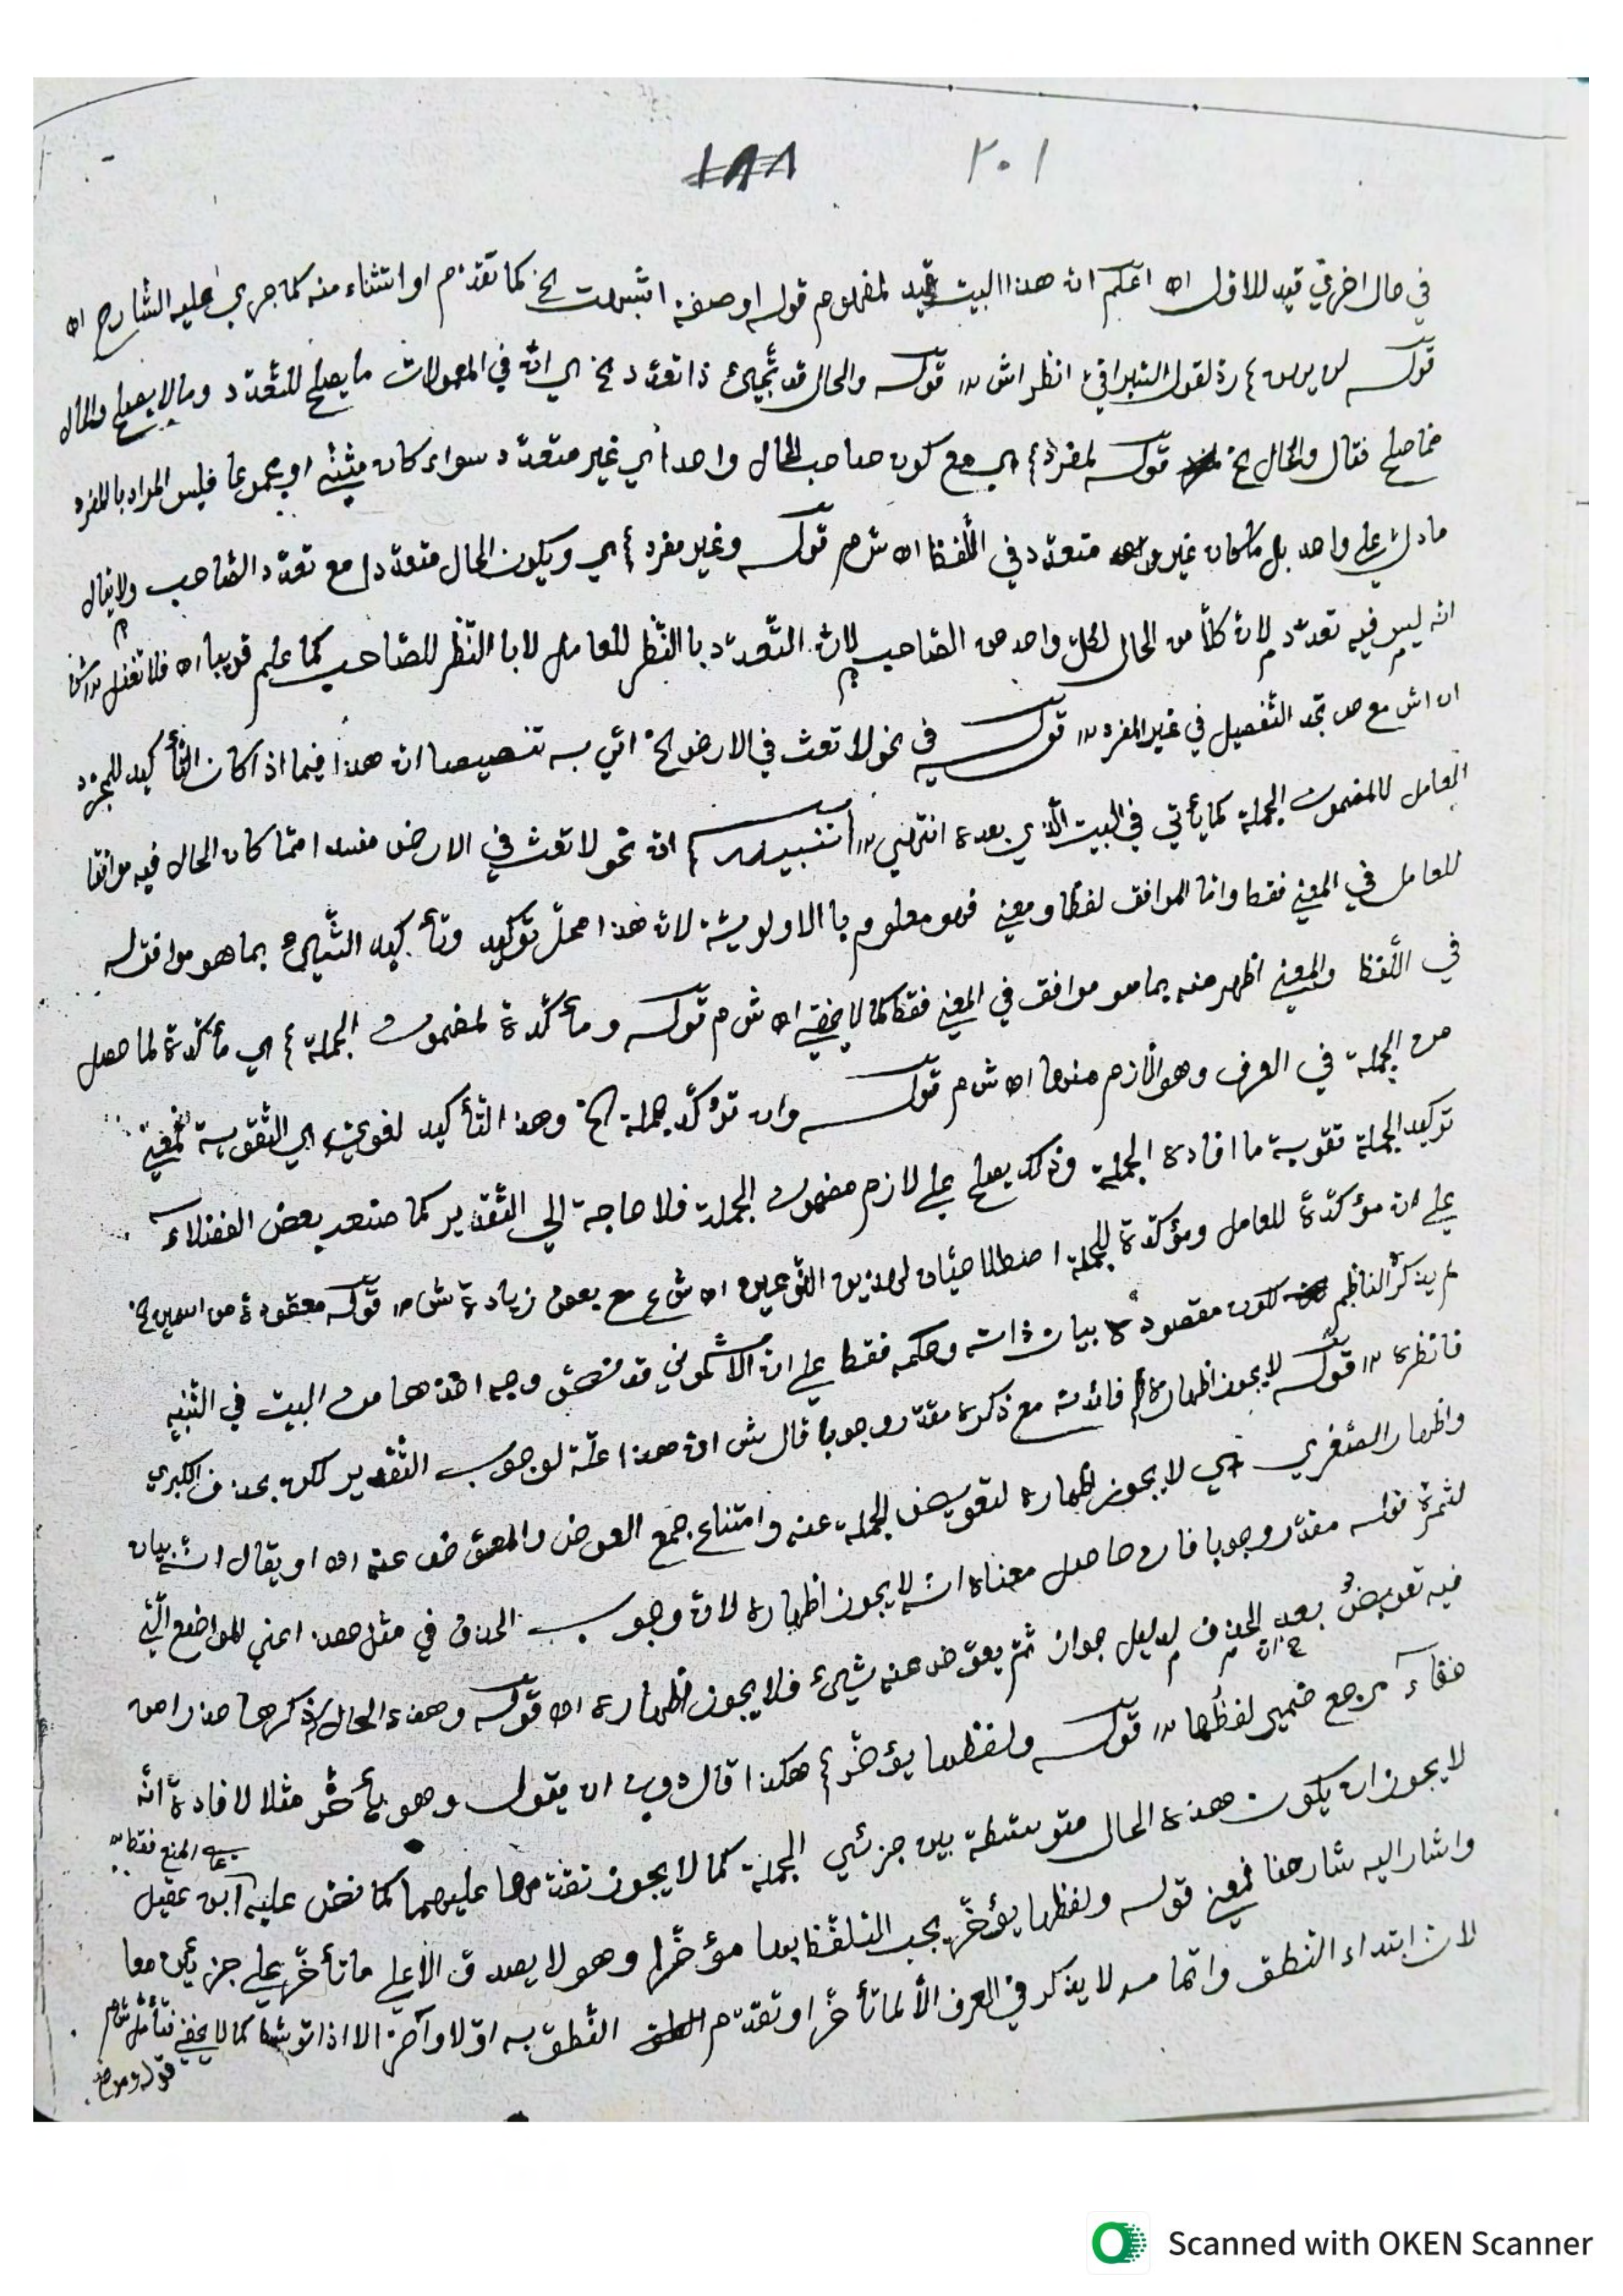 ٢٠١ ١٨٨
في حال اخرى قيد للاول اه اعلم ان هذا البيت قيد لمفهوم قوله اوصفة اشبهت الخ كما تقدّم او استثناء منه كما جرى عليه الشارح اه
قوله لن يهن ردّ لقول السيرافي انظر اش قوله والحال قد تجيئ ذا تعدّد الخ اي انّ في المعمولات ما يصلح للتّعدّد وما لا يصلح والحال
مما صلح فقال والحال الخ قوله لمفرد اي مع كون صاحب الحال واحدا اي غير متعدّد سواء كان مثنّى او مجموعا فليس المراد بالمفرد
ما دلّ على واحد بل ما كان غير متعدّد في اللّفظ اه ش م قوله وغير مفرد اي ويكون الحال متعدّدا مع تعدّد الصّاحب ولا يقال
انّه ليس فيه تعدّد لانّ كلّا من الحال لكلّ واحد من الصّاحب لانّ التّعدّد بالنّظر للعامل لا بالنّظر للصّاحب كما علم قريبا اه فلا تغفل
اه اش مع ص تجد التّفصيل في غير المفرد قوله في نحو لا تعث في الارض الخ اتي به تنصيصا ان هذا فيما اذا كان التّأكيد للمجرّد
العامل لا لمضمون الجملة كما يأتي في البيت الّذي بعده انتهى تنبيه ان نحو لا تعث في الارض مفسدا ممّا كان الحال فيه موافقا
للعامل في المعنى فقط وامّا الموافق لفظا ومعنى فهو معلوم بالاولويّة لان هذا محلّ توكيد وتأكيد الشّيئ بما هو موافق له
في اللّفظ والمعنى اظهر منه بما هو موافق في المعنى فقط كما لا يخفى اه ش م قوله ومأكّدة لمضمون الجملة اي مأكّدة لما حصل
من الجملة في العرف وهو اللّازم منها اه ش م قوله وان تؤكّد جملة الخ وهذا التّأكيد لغويّ اي التّقوية فمعنى
توكيد الجملة تقوية ما افاده الجملة وذلك يصلح على لازم مضمون الجملة فلا حاجة الى التّقدير كما صنعه بعض الفضلاء
على ان مؤكّدة للعامل ومؤكّدة للجملة اصطلاحيّان لهذين النّوعين اه ش ع مع بعض زيادة ش م قوله معقودة من اسمين الخ
لم يذكر النّاظم لكون مقصوده بيان ذاته وحكمه فقط على انّ الاشموني قد وجه اخذها من البيت في التّنبيه
فانظره قوله لا يجوز اظهاره فائدته مع ذكره مقدّر وجوبا قال ش ان هذا علّة لوجوب التّقدير لكن بحذف الكبرى
واظهار الصّغرى اي لا يجوز اظهاره لتعويض الجملة عنه وامتناع جمع العوض والمعوّض عنه اه او يقال انّه بيان
لثمرة قوله مقدّر وجوبا فان حاصل معناه انّه لا يجوز اظهاره لانّ وجوب الحذف في مثل هذا اعني المواضع الّتي
فيه تعويض بعد الحذف لدليل جواز ثمّ يعوّض عنه شيئ فلا يجوز اظهاره اه قوله وهذه الحال ذكرها حذرا من
خفاء مرجع ضمير لفظها قوله ولفظها يؤخّر هكذا قال دون ان يقول وهو يأخّر مثلا لافادة انّه
لا يجوز ان يكون هذه الحال متوسّطة بين جزئي الجملة كما لا يجوز تقدّمها عليهما كما نصّ عليه ابن عقيل
على المنع فقط
واشار اليه شارحنا فمعنى قوله ولفظها يؤخّر يجب التّلفّظ بها مؤخّرا وهو لا يصدق الّا على ما تأخّر على جزئين معا
لان ابتداء النّطق وانّما لا يذكر في العرف الّا لما تأخّر او تقدّم النّطق به اوّلا وآخرا الا اذا توسّط كما لا يخفى فتأمّل ش م
قوله وموضع
Scanned with OKEN Scanner